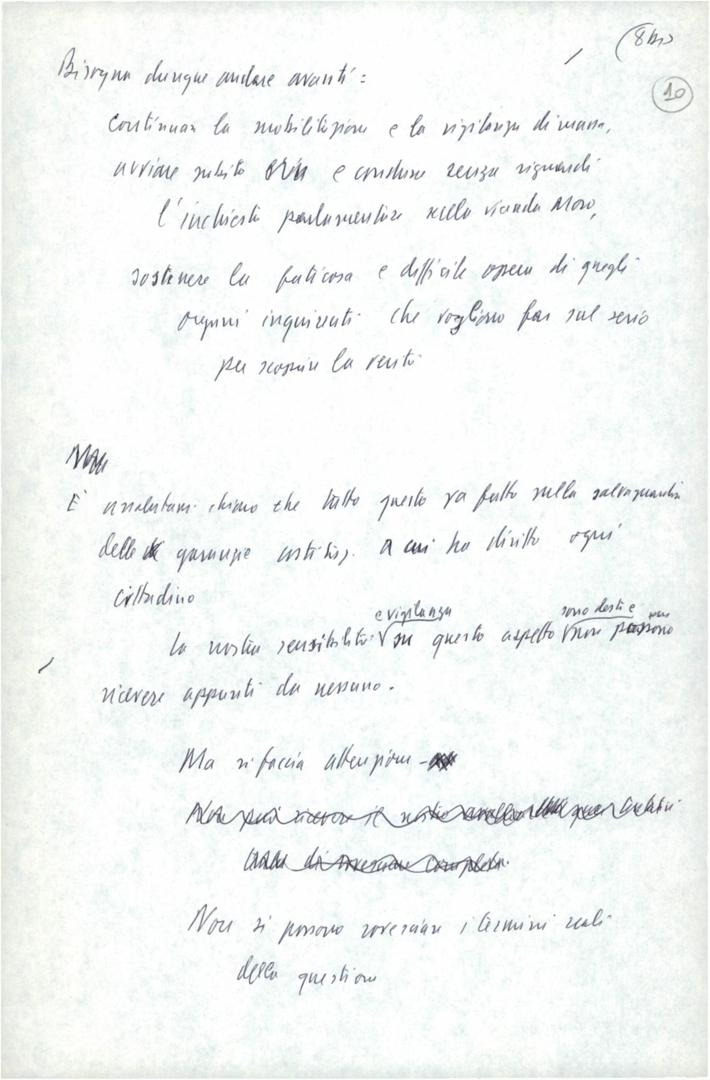 (8 bis)
10
Bisogna dunque andare avanti:
continuar la mobilitazione e la vigilanza di massa,
avviare subito e condurre senza riguardi
l'inchiesta parlamentare sulla vicenda Moro,
sostenere la faticosa e difficile opera di quegli
organi inquirenti che vogliono far sul serio
per scoprire la verità
È assolutam. chiaro che tutto questo va fatto sulla salvaguardia
delle garanzie costituz. a cui ha diritto ogni
cittadino
e vigilanza sono deste e
La nostra sensibilità su questo aspetto non possono
ricevere appunti da nessuno.
Ma si faccia attenzione -
Non si possono rovesciare i termini reali
della questione